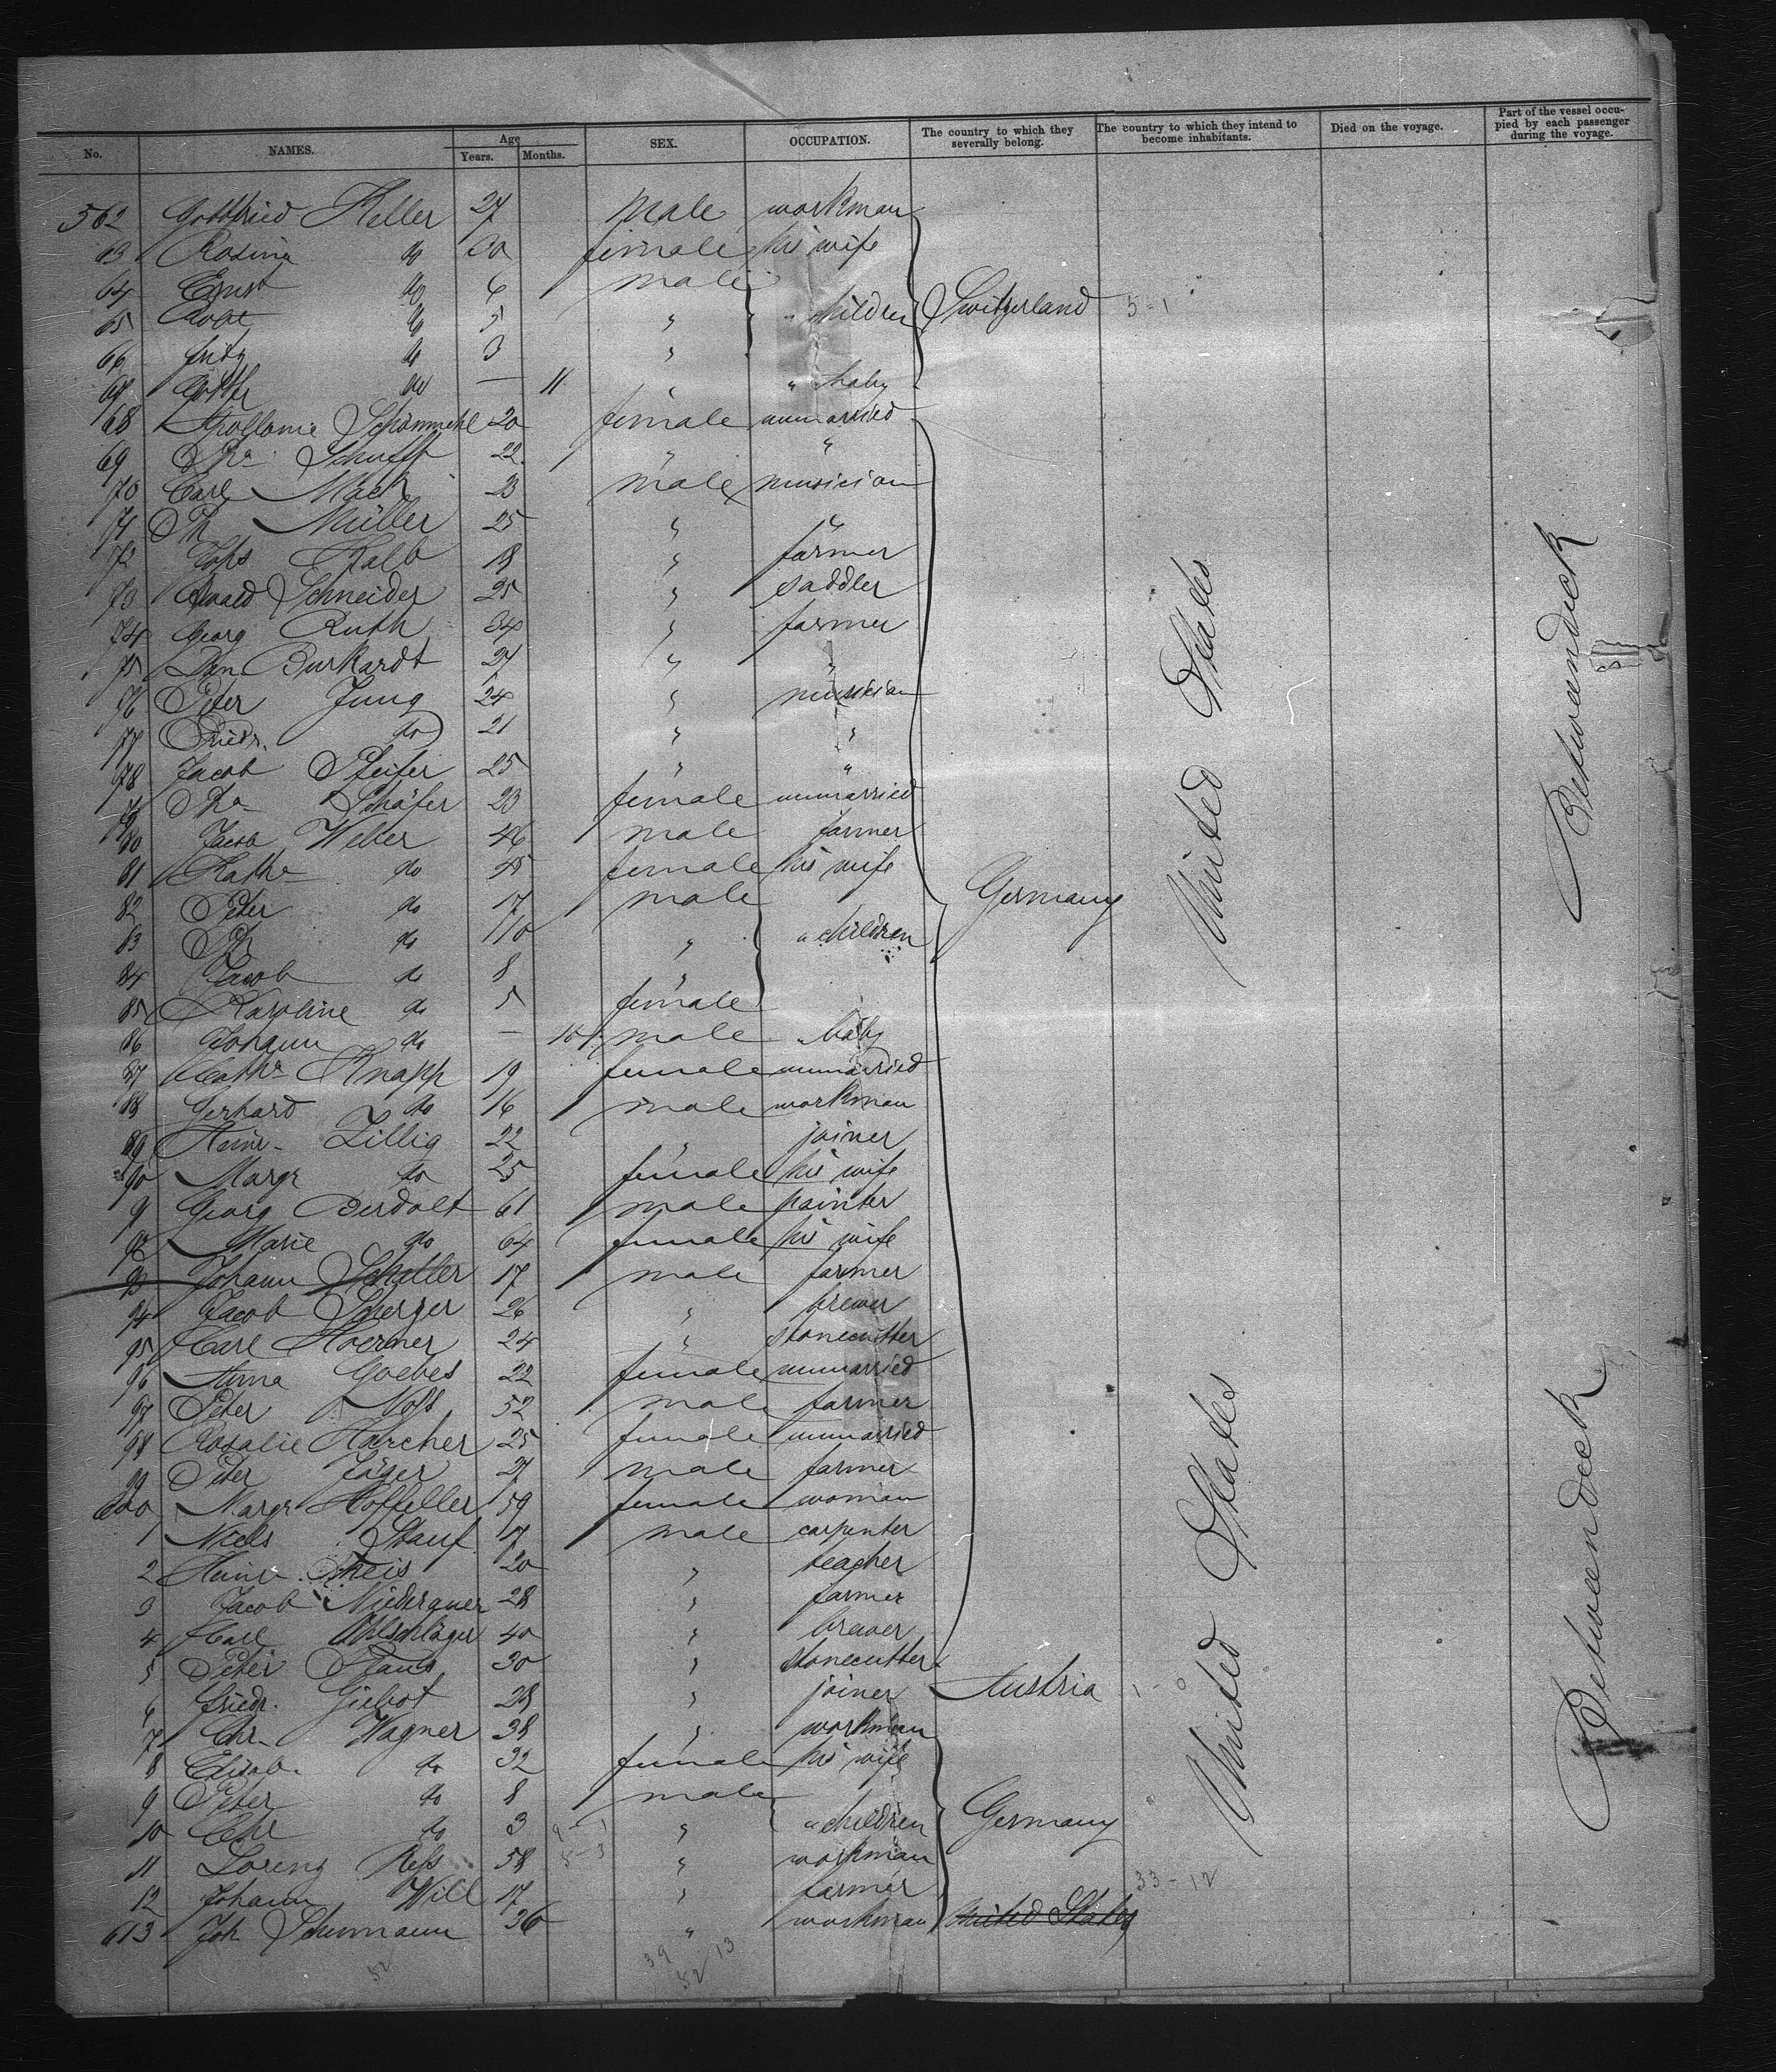 No. NAMES. Age Years. Months. SEX. OCCUPATION. The country to which they severally belong. The country to which they intend to become inhabitants. Died on the voyage. Part of the vessel occupied by each passenger during the voyage.
562 Gottfried Keller 27 male workman
63 Rosina do 30 female his wife
64 Ernst do 6 male
65 do 5 " " children Switzerland 5-1
66 Fritz do 3 "
67 do — 11 " " baby
68 Apollonia Schönmehl 20 female unmarried
69 Schufft 22 " "
70 Carl Mack 23 male musician
71 Ph Müller 25 " "
72 Kalb 18 " farmer
73 Schneider 25 " saddler
74 Georg Ruth 34 " farmer
75 Burkardt 27 " "
76 Peter Jung 24 " musician
77 Friedr. do 21 " "
78 Jacob Pfeifer 25 " "
79 Schäfer 23 female unmarried
80 Jacob Weber 46 male farmer
81 Katha do 45 female his wife
82 Peter do 17 male
83 Ph do " " children Germany
84 Jacob do 8 "
85 Karoline do 5 female
86 Johann do — 10 male " baby
87 Catha Knapp 19 female unmarried
88 Gerhard do 16 male workman
89 Heinr. Zillig 22 " joiner
90 Margr do 25 female his wife
91 Georg Berdolt 61 male painter
92 Marie do 64 female his wife
93 Johann Schaller 17 male farmer
94 Jacob Scherger 26 " brewer
95 Carl Hoerner 24 " stonecutter
96 Anna Goebes 22 female unmarried
97 Peter Noss 52 male farmer
98 Rosalie Harcher 25 female unmarried
99 Peter Jäger 27 male farmer
600 Margr Hoffeller 59 female woman
1 Niels Stauf 17 male carpenter
2 Heinr. Theis 20 " teacher
3 Jacob Niederauer 28 " farmer
4 Carl Ohlschläger 40 " brewer
5 Peter Staus 30 " stonecutter
6 Friedr. Giebot 28 " joiner Austria 1-0
7 Chr. Wagner 38 " workman
8 Elisab. do 32 female his wife
9 Peter do 8 male
10 Chr do 3 " " children Germany
11 Lorenz Ress 58 " workman
12 Johann Will 17 " farmer 33-12
613 Joh Schumann 36 " workman United States
United States
United States
Betweendeck
Betweendeck
39 13
52
52